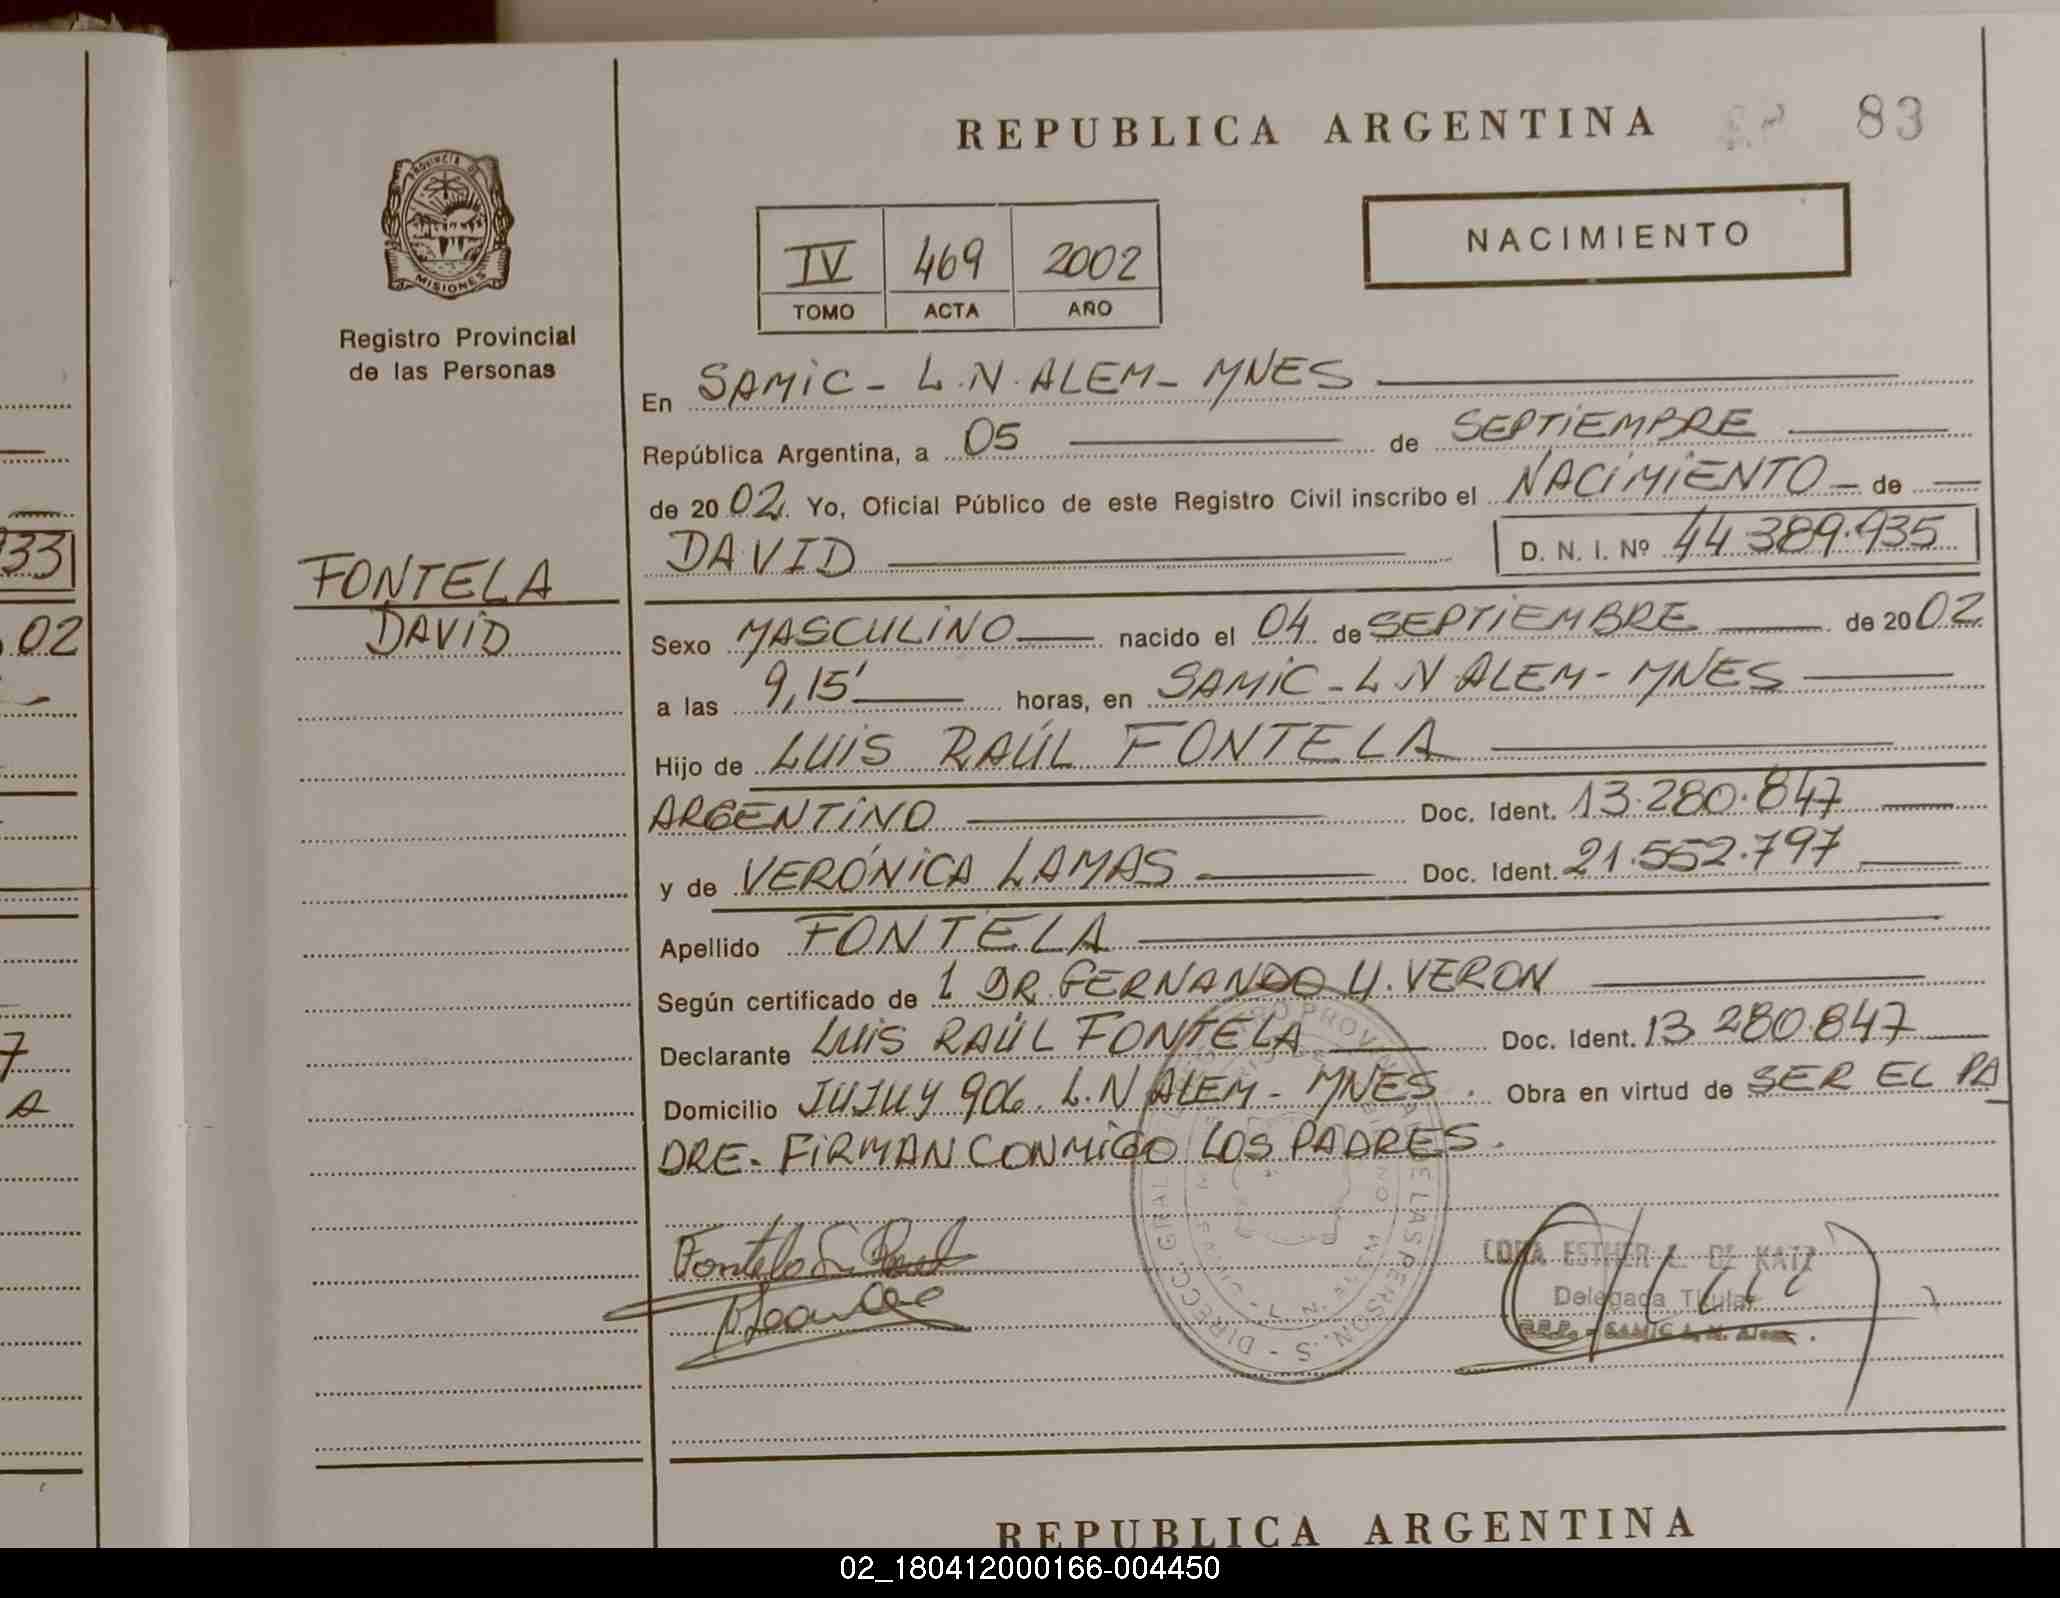 REPUBLICA ARGENTINA 83
PROVINCIA DE
MISIONES
Registro Provincial
de las Personas
IV 469 2002
TOMO ACTA AÑO
NACIMIENTO
En SAMIC - L.N. ALEM - MNES
República Argentina, a 05 de SEPTIEMBRE
de 2002. Yo, Oficial Público de este Registro Civil inscribo el NACIMIENTO de
DAVID D. N. I. Nº 44 389.935
FONTELA
DAVID
Sexo MASCULINO nacido el 04 de SEPTIEMBRE de 2002.
a las 9,15' horas, en SAMIC - L N ALEM - MNES
Hijo de LUIS RAÚL FONTELA
ARGENTINO Doc. Ident. 13.280.847
y de VERÓNICA LAMAS Doc. Ident. 21.552.797
Apellido FONTELA
Según certificado de 1 DR. FERNANDO U. VERON
Declarante LUIS RAÚL FONTELA Doc. Ident. 13 280.847
Domicilio JUJUY 906. L.N ALEM - MNES. Obra en virtud de SER EL PA
DRE. FIRMAN CONMIGO LOS PADRES.
ESTHER DE KATZ
Delegada Titular
33
02
7
A
REPUBLICA ARGENTINA
02_180412000166-004450